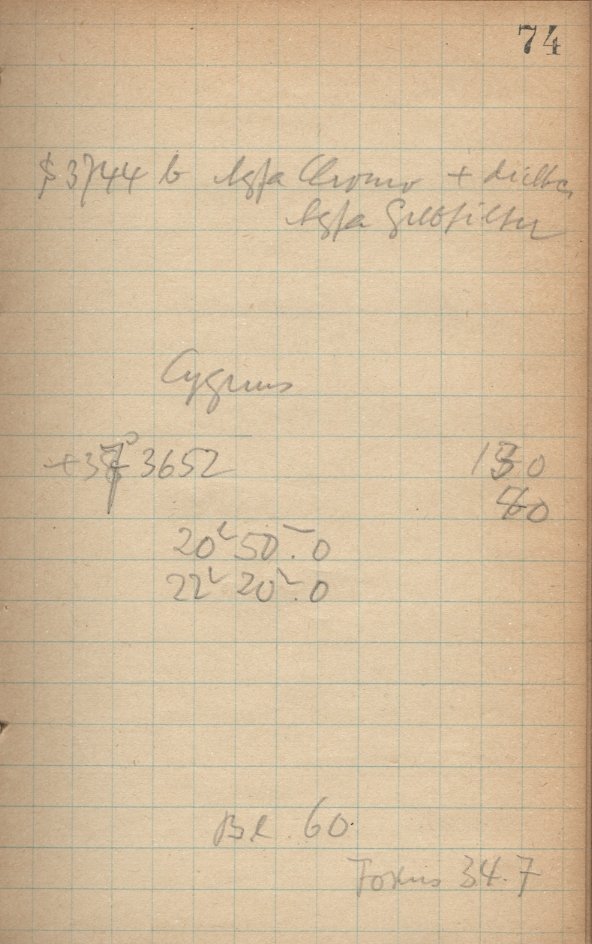 74
S 3744 b Agfa Chromo +
Agfa Gelbfilter
Cygnus
+37° 3652 130
80
20h 50m.0
22h 20m.0
Bl. 60
Fokus 34.7